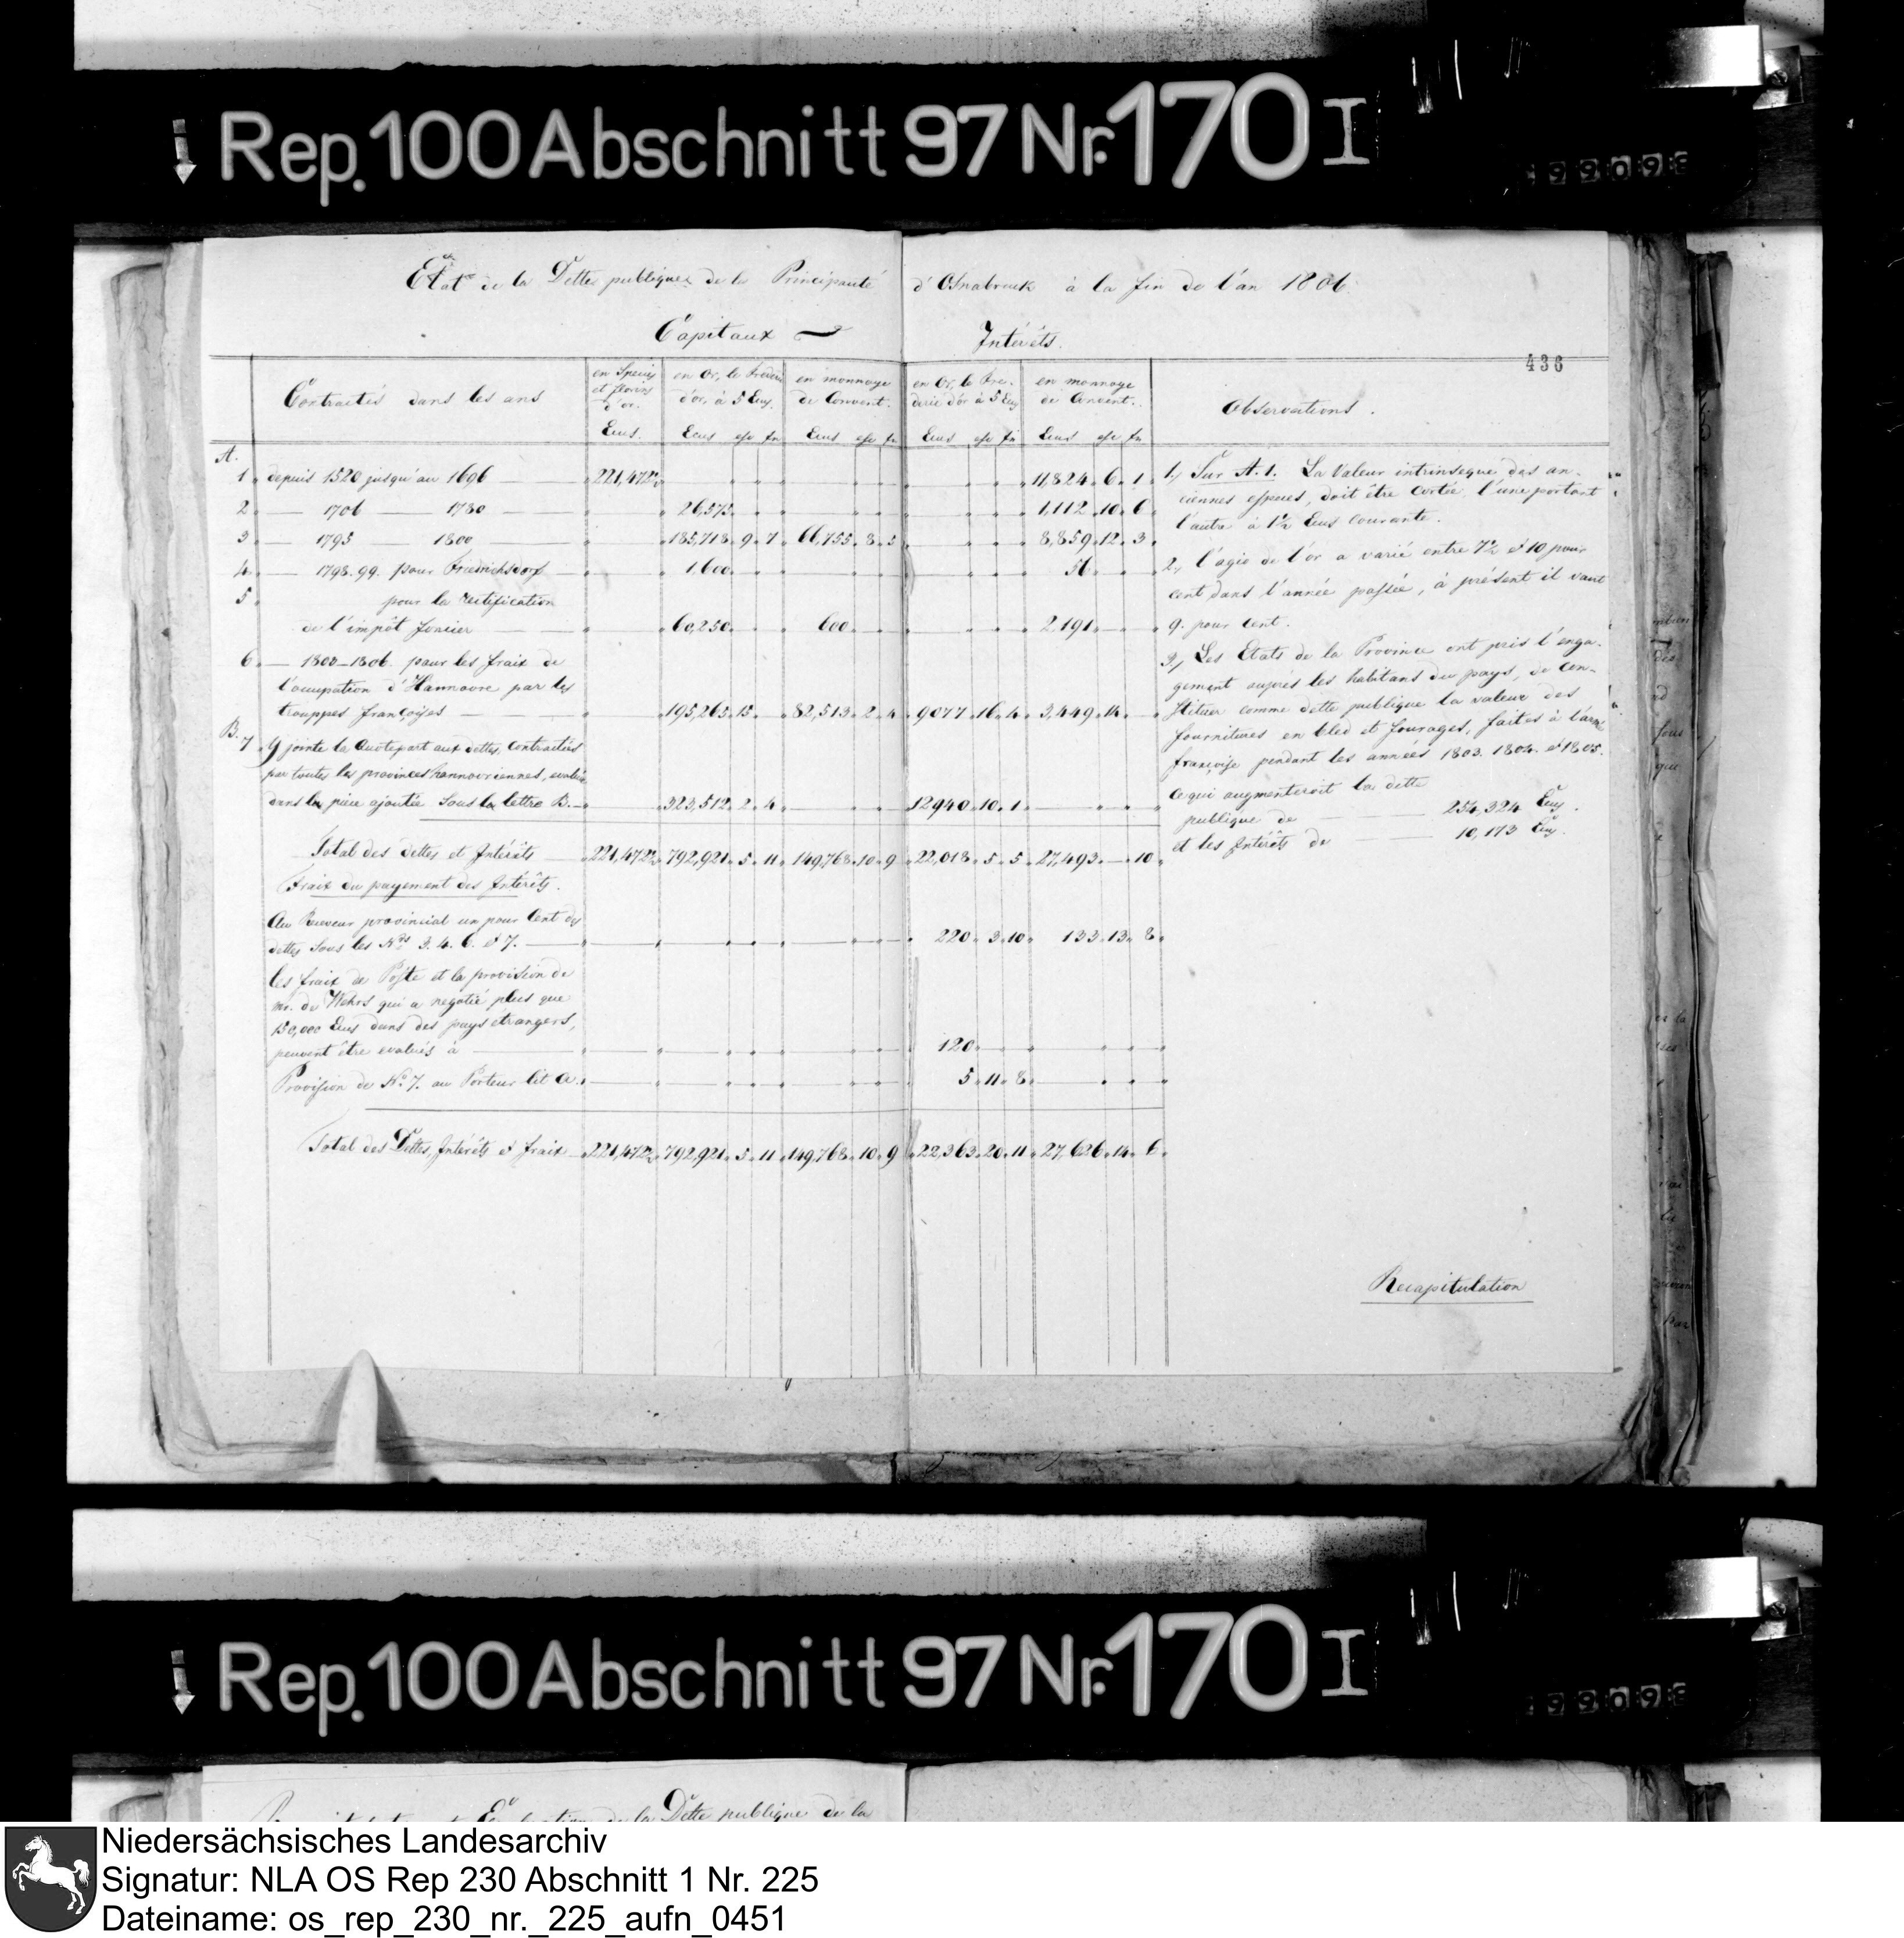 Rep. 100 Abschnitt 97 Nr. 170 I
99093
Etat de la Dette publique de la Principauté d'Osnabruck à la fin de l'an 1806
Capitaux Intérêts.
436
Contractés dans les ans
en Species et florins d'or. Ecus.
en Or, le Frederic d'or, à 5 Ecus. Ecus
en monnoye de Convent. Ecus
en Or, le Frederic d'or à 5 Ecus Ecus
en monnoye de Convent. Ecus
Observations.
A.
1 depuis 1520 jusqu'au 1696 221,472½ 11,824. 6. 1
2 — 1706 — 1780 26,575 1,112. 10. 6
3 — 1795 — 1800 185,718. 9. 7 66,755. 8. 5 8,859. 12. 3
4 — 1798. 99. pour Friedrichsdorf 1,600 56
5 pour la rectification
de l'impôt foncier 60,250 600 2,191
6 — 1803–1806. pour les fraix de
l'occupation d'Hannovre par les
trouppes françoises 195,265. 15. 82,513. 2. 4 9077. 16. 4 3,449. 14.
B. 7 Y jointe la Quotepart aux dettes, contractées
par toutes les provinces hannovriennes, evaluée
dans la piece ajoutée sous la lettre B. 323,512. 2. 4 12940. 10. 1
Total des dettes et Intérêts 221,472½ 792,921. 5. 11 149,768. 10. 9 22,018. 5. 5 27,493. — 10
Fraix du payement des Intérêts.
Au Receveur provincial un pour Cent des
dettes sous les Nos 3. 4. 6. et 7. 220. 3. 10 133. 13. 8
les fraix de Poste et la provision de
mr. de Wehrs qui a negotié plus que
150,000 Ecus dans des pays etrangers,
peuvent être evalués à 120
Provision de No. 7. au Porteur lit a. 5. 11. 8
Total des Dettes, Intérêts et fraix 221,472½ 792,921. 5. 11 149,768. 10. 9 22,363. 20. 11 27,626. 14. 6
1.) Sur A. 1. La Valeur intrinseque des an-
ciennes especes, doit être portant
l'autre à 1½ Ecus Courante.
2.) l'agio de l'or a varié entre 7½ et 10 pour
cent dans l'année passée, à présent il vaut
9. pour cent.
3.) Les Etats de la Province ont pris l'enga-
gement auprès les habitans du pays, de con-
stituer comme dette publique la valeur des
fournitures en bled et fourages, faites à l'armée
françoise pendant les années 1803. 1804. et 1805.
ce qui augmenteroit la dette
publique de — 254,324 Ecus.
et les Intérêts de — 10,173 Ecus.
Recapitulation
Rep. 100 Abschnitt 97 Nr. 170 I
99093
de la Dette publique de la
Niedersächsisches Landesarchiv
Signatur: NLA OS Rep 230 Abschnitt 1 Nr. 225
Dateiname: os_rep_230_nr._225_aufn_0451